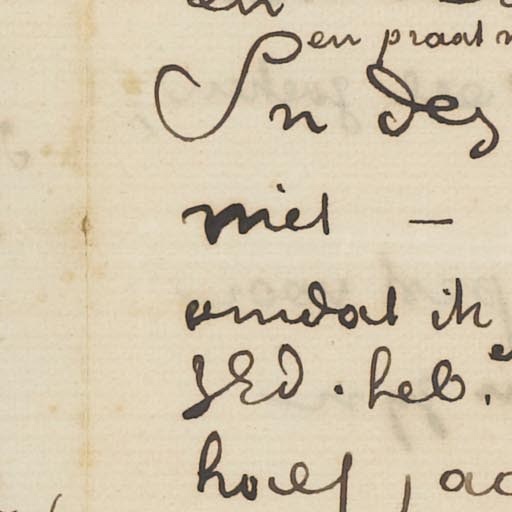 en praat
In dez
niet —
omdat ik
ZEd. heb.
half, ac